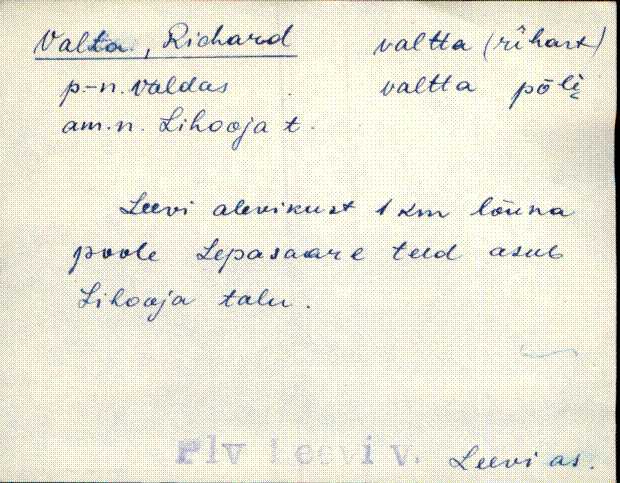 Valta, Richard valtta (rîhart)
p-n. Valdas valtta põlį
am.n. Lihooja t.
Leevi alevikust 1 km lõuna
poole Lepasaare teed asub
Lihooja talu.
Plv Leevi v. Leevi as.